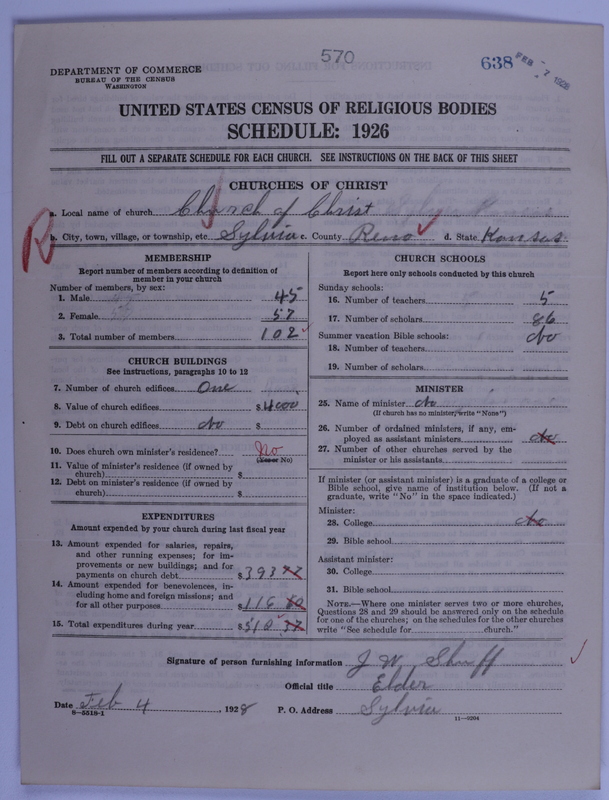 570
638 FEB 7 1928
DEPARTMENT OF COMMERCE
BUREAU OF THE CENSUS
WASHINGTON
UNITED STATES CENSUS OF RELIGIOUS BODIES
SCHEDULE: 1926
FILL OUT A SEPARATE SCHEDULE FOR EACH CHURCH. SEE INSTRUCTIONS ON THE BACK OF THIS SHEET
CHURCHES OF CHRIST
a. Local name of church Church of Christ
R b. City, town, village, or township, etc. Sylvia c. County Reno d. State Kansas
MEMBERSHIP
Report number of members according to definition of
member in your church
Number of members, by sex:
1. Male 45
2. Female 57
3. Total number of members 102
CHURCH BUILDINGS
See instructions, paragraphs 10 to 12
7. Number of church edifices One
8. Value of church edifices $4000
9. Debt on church edifices No $
10. Does church own minister's residence? No
(Yes or No)
11. Value of minister's residence (if owned by
church) $
12. Debt on minister's residence (if owned by
church) $
EXPENDITURES
Amount expended by your church during last fiscal year
13. Amount expended for salaries, repairs,
and other running expenses; for im-
provements or new buildings; and for
payments on church debt $393
14. Amount expended for benevolences, in-
cluding home and foreign missions; and
for all other purposes $116
15. Total expenditures during year $510 37
CHURCH SCHOOLS
Report here only schools conducted by this church
Sunday schools:
16. Number of teachers 5
17. Number of scholars 86
Summer vacation Bible schools: No
18. Number of teachers
19. Number of scholars
MINISTER
25. Name of minister No
(If church has no minister, write "None")
26. Number of ordained ministers, if any, em-
ployed as assistant ministers No
27. Number of other churches served by the
minister or his assistants
If minister (or assistant minister) is a graduate of a college or
Bible school, give name of institution below. (If not a
graduate, write "No" in the space indicated.)
Minister:
28. College No
29. Bible school
Assistant minister:
30. College
31. Bible school
NOTE.—Where one minister serves two or more churches,
Questions 28 and 29 should be answered only on the schedule
for one of the churches; on the schedules for the other churches
write "See schedule for church."
Signature of person furnishing information J W Shuff
Official title Elder
Date Feb 4, 1928 P. O. Address Sylvia
8—5518-1 11—9204